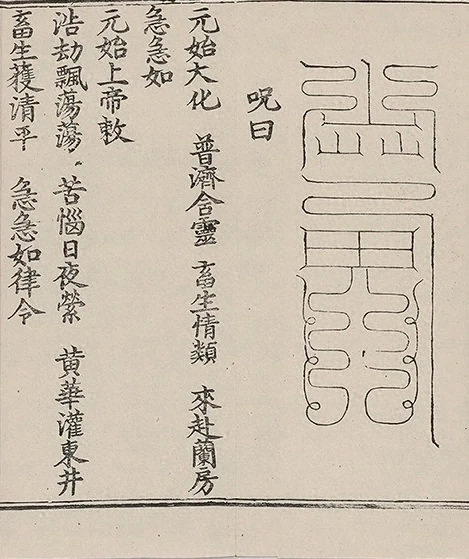 呪曰
元始大化　普濟含靈　畜生情類　來赴蘭房
急急如
元始上帝敕
浩劫飄蕩蕩　苦惱日夜縈　黄華灌東井
畜生獲清平　急急如律令